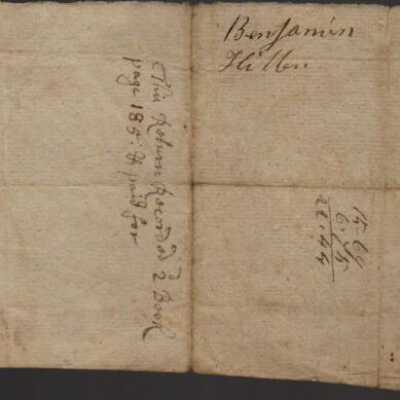 Benjamin
This Return Record'd 2 Book
page 185. & paid for
15.69
6.75
22.44